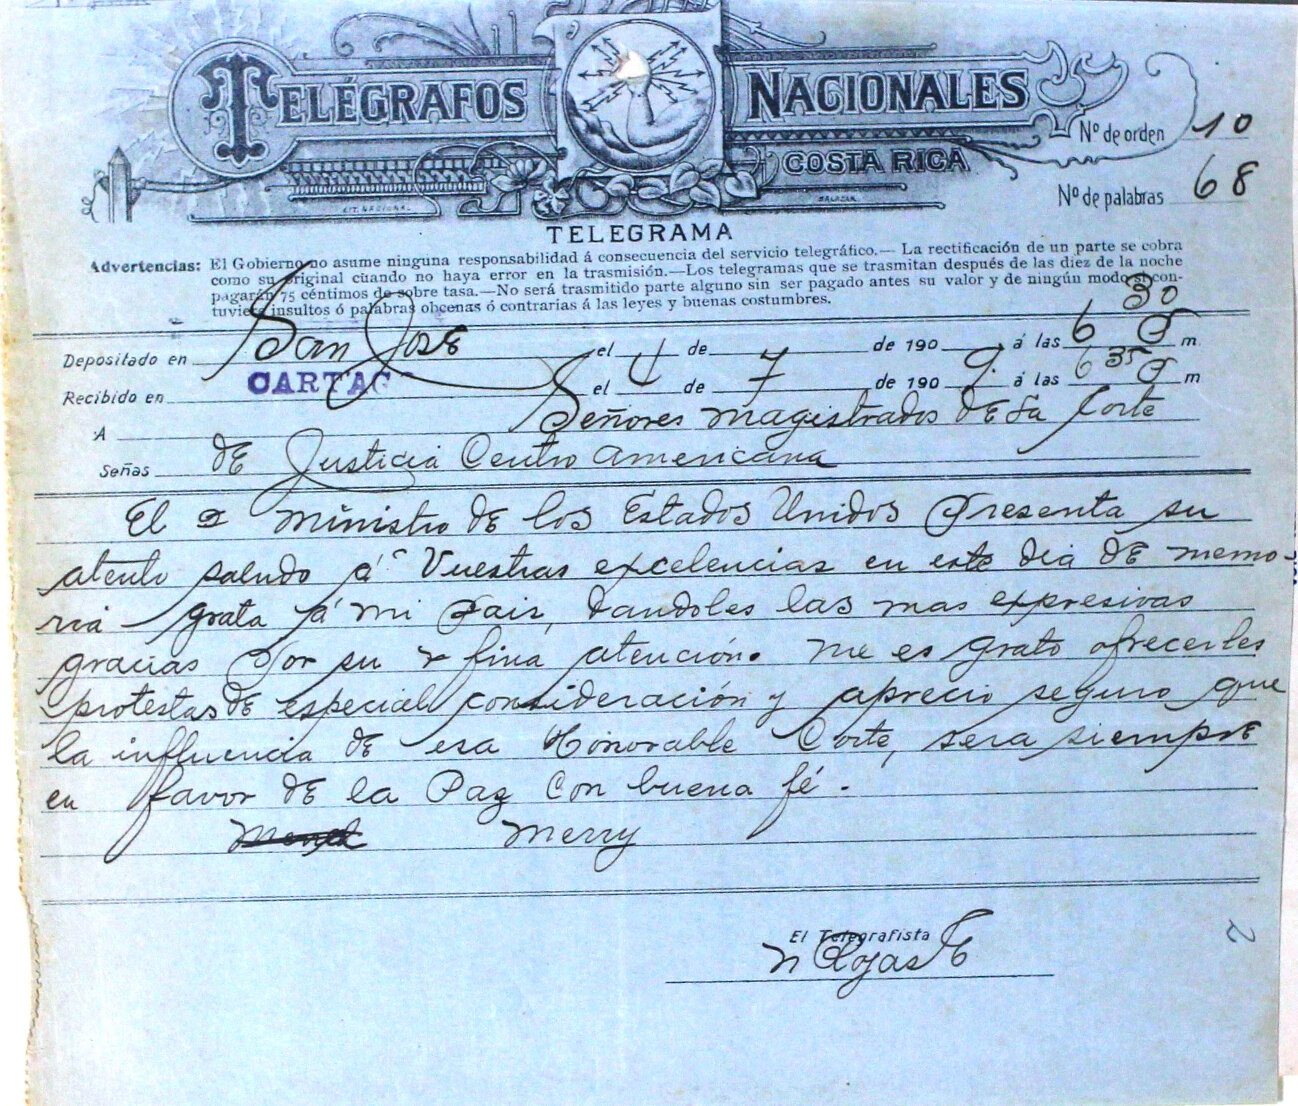 TELÉGRAFOS NACIONALES
COSTA RICA
LIT. NACIONAL
SALAZAR
Nº de orden 10
Nº de palabras 68
TELEGRAMA
Advertencias: El Gobierno no asume ninguna responsabilidad á consecuencia del servicio telegráfico.— La rectificación de un parte se cobra
como su original cuando no haya error en la trasmisión.—Los telegramas que se trasmitan después de las diez de la noche
pagarán 75 céntimos de sobre tasa.—No será trasmitido parte alguno sin ser pagado antes su valor y de ningún modo si con-
tuviere insultos ó palabras obcenas ó contrarias á las leyes y buenas costumbres.
Depositado en San José el 4 de 7 de 190 á las 6 30 P m
Recibido en CARTAGO el de de 190 9. á las 6 35 P m
A Señores Magistrados de la Corte
Señas de Justicia Centro Americana
El Ministro de los Estados Unidos Presenta su
atento saludo á Vuestras excelencias en este dia de memo-
ria grata á mi Pais, dandoles las mas expresivas
gracias Por su fina atención. Me es grato ofrecerles
protestas de especial consideración y aprecio seguro que
la influencia de esa Honorable Corte, sera siempre
en favor de la Paz Con buena fé.
Merry
El Telegrafista
N Rojas E
2